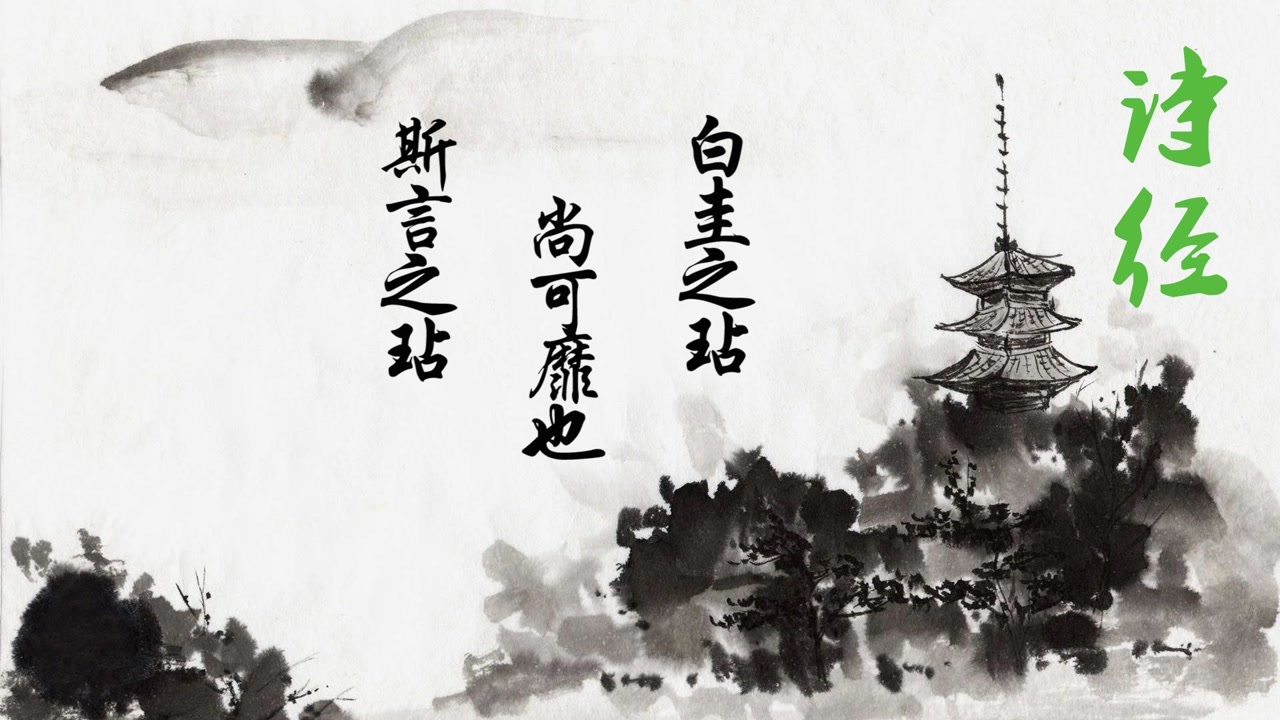 诗经
白圭之玷
尚可靡也
斯言之玷